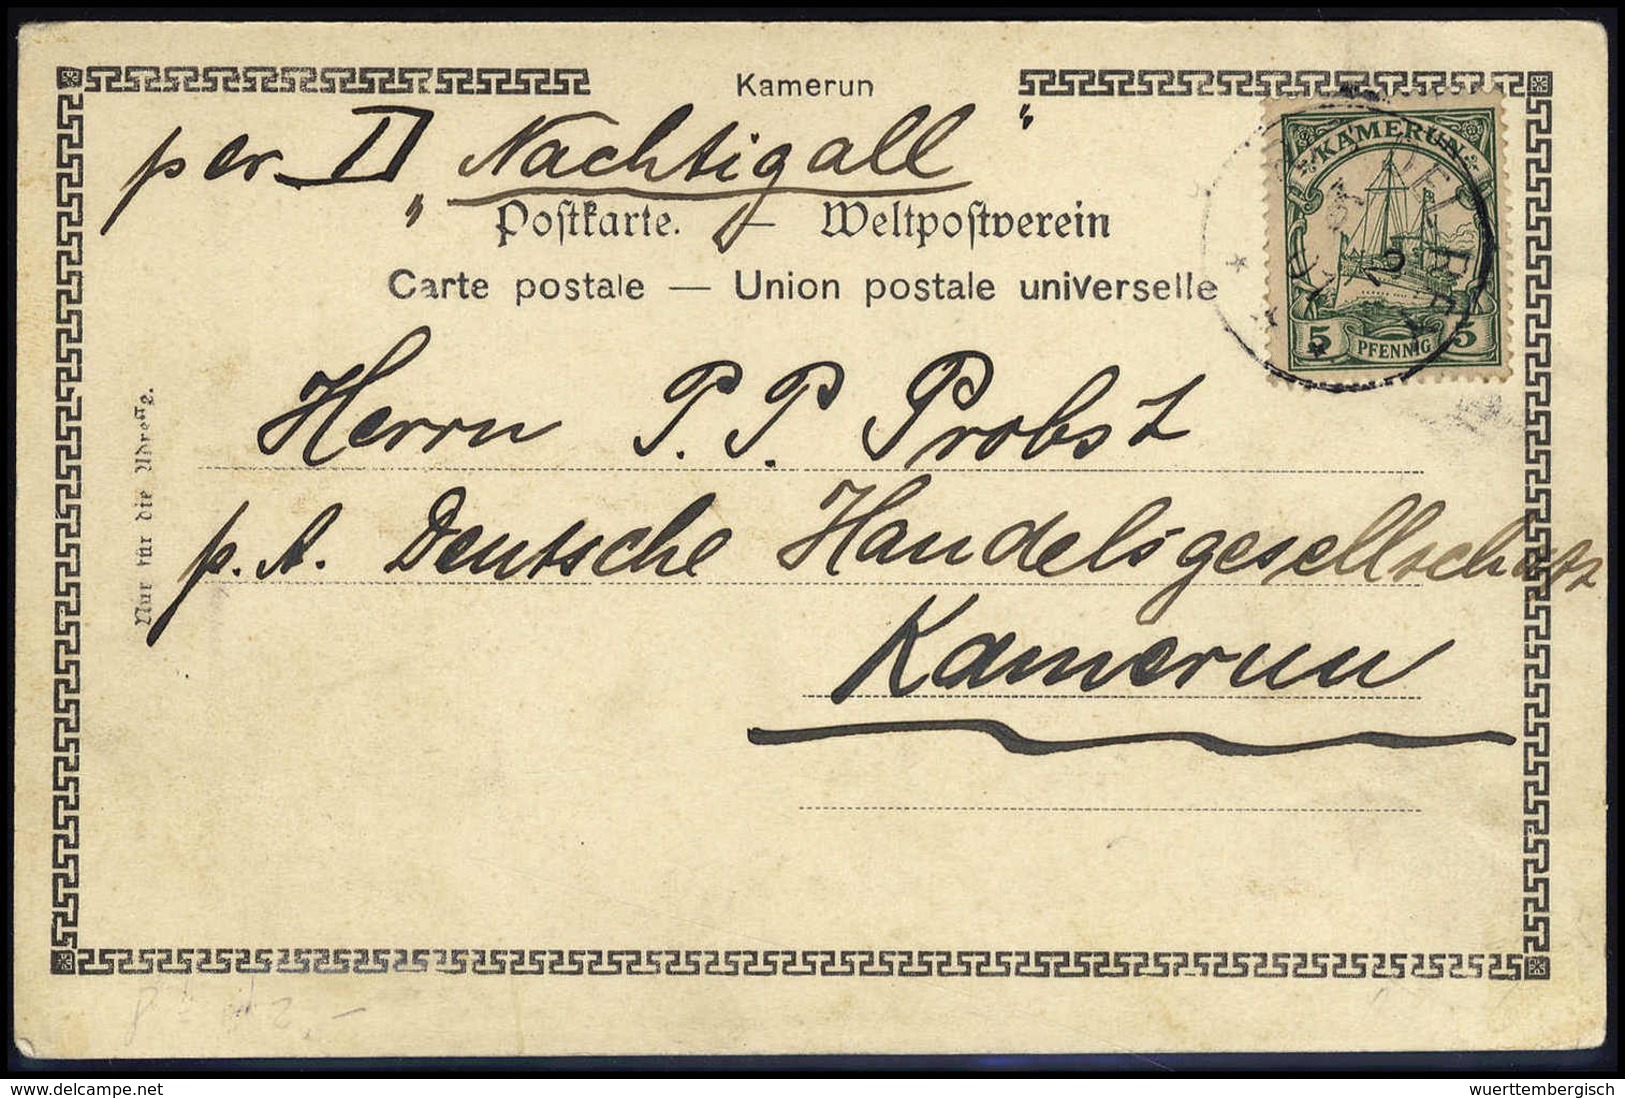 Kamerun
per D "Nachtigall"
Postkarte. — Weltpostverein
Carte postale — Union postale universelle
KAMERUN
5 PFENNIG 5
Herrn P. P. Probst
p. A. Deutsche Handelsgesellschaft
Kamerun
Nur für die Adresse.
www.delcampe.net
wuerttembergisch